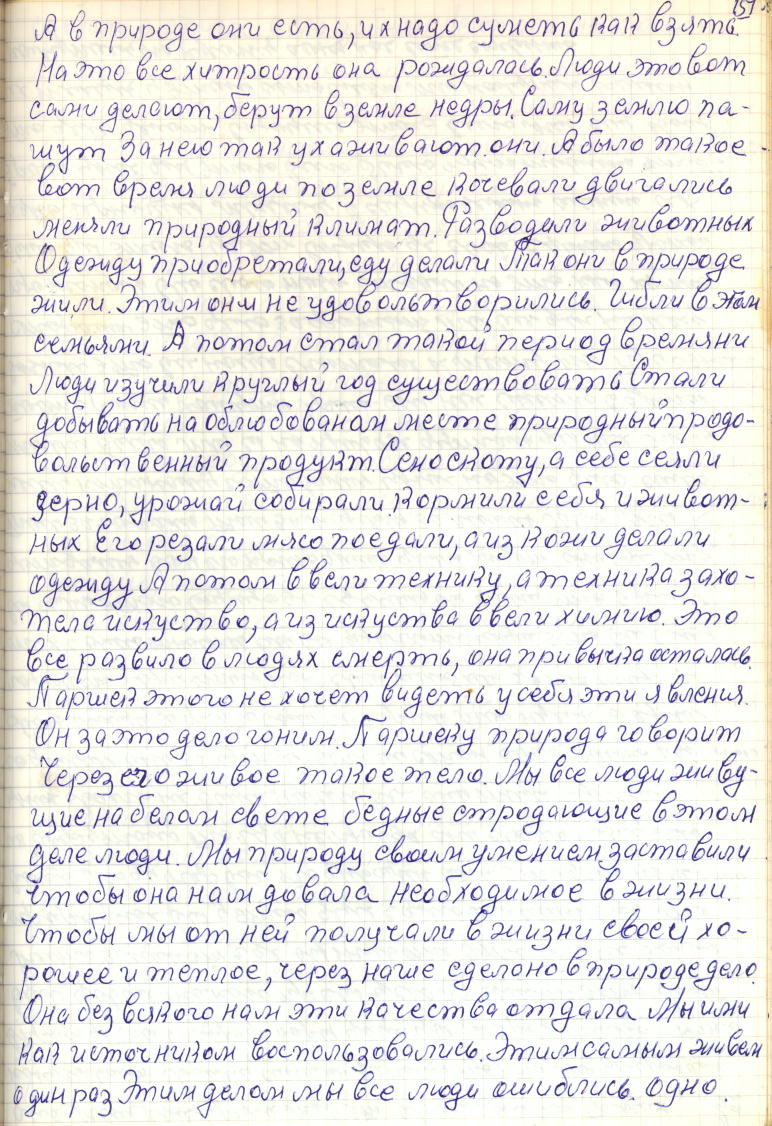 151
А в природе они есть, их надо суметь как взять.
На это все хитрость она рождалась. Люди это вот
сами делают, берут в земле недры. Саму землю па-
шут За нею так ухаживают они. А было такое
вот время люди по земле кочевали двигались
меняли природный климат. Разводили животных
Одежду приобретали, еду делали Так они в природе
жили. Этим они не удовольтворились. Гибли в этом
семьями. А потом стал такой период времяни
Люди изучили круглый год существовать Стали
добывать на облюбованом месте природный продо-
вольственный продукт. Сено скоту, а себе сеяли
зерно, урожай собирали. кормили себя и живот-
ных Его резали мясо поедали, а из кожи делали
одежду А потом ввели технику, а техника захо-
тела искуство, а из искуства ввели химию. Это
все развило в людях смерть, она привычка осталась.
Паршек этого не хочет видеть у себя эти явления.
Он за это дело гоним. Паршеку природа говорит
Через его живое такое тело. Мы все люди живу-
щие на белом свете бедные стродающие в этом
деле люди. Мы природу своим умением заставили
Чтобы она нам довала необходимое в жизни.
Чтобы мы от ней получали в жизни своей хо-
рошее и теплое, через наше сделоно в природе дело.
Она без всякого нам эти качества отдала Мы ими
как источником воспользовались. Этим самым живем
один раз Этим делом мы все люди ошиблись. одно.